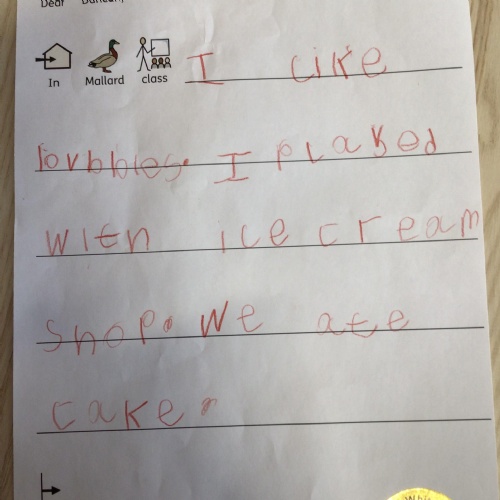 Dear Duncan,
In Mallard class I like
bubbles. I played
with ice cream
shop. We ate
cake.